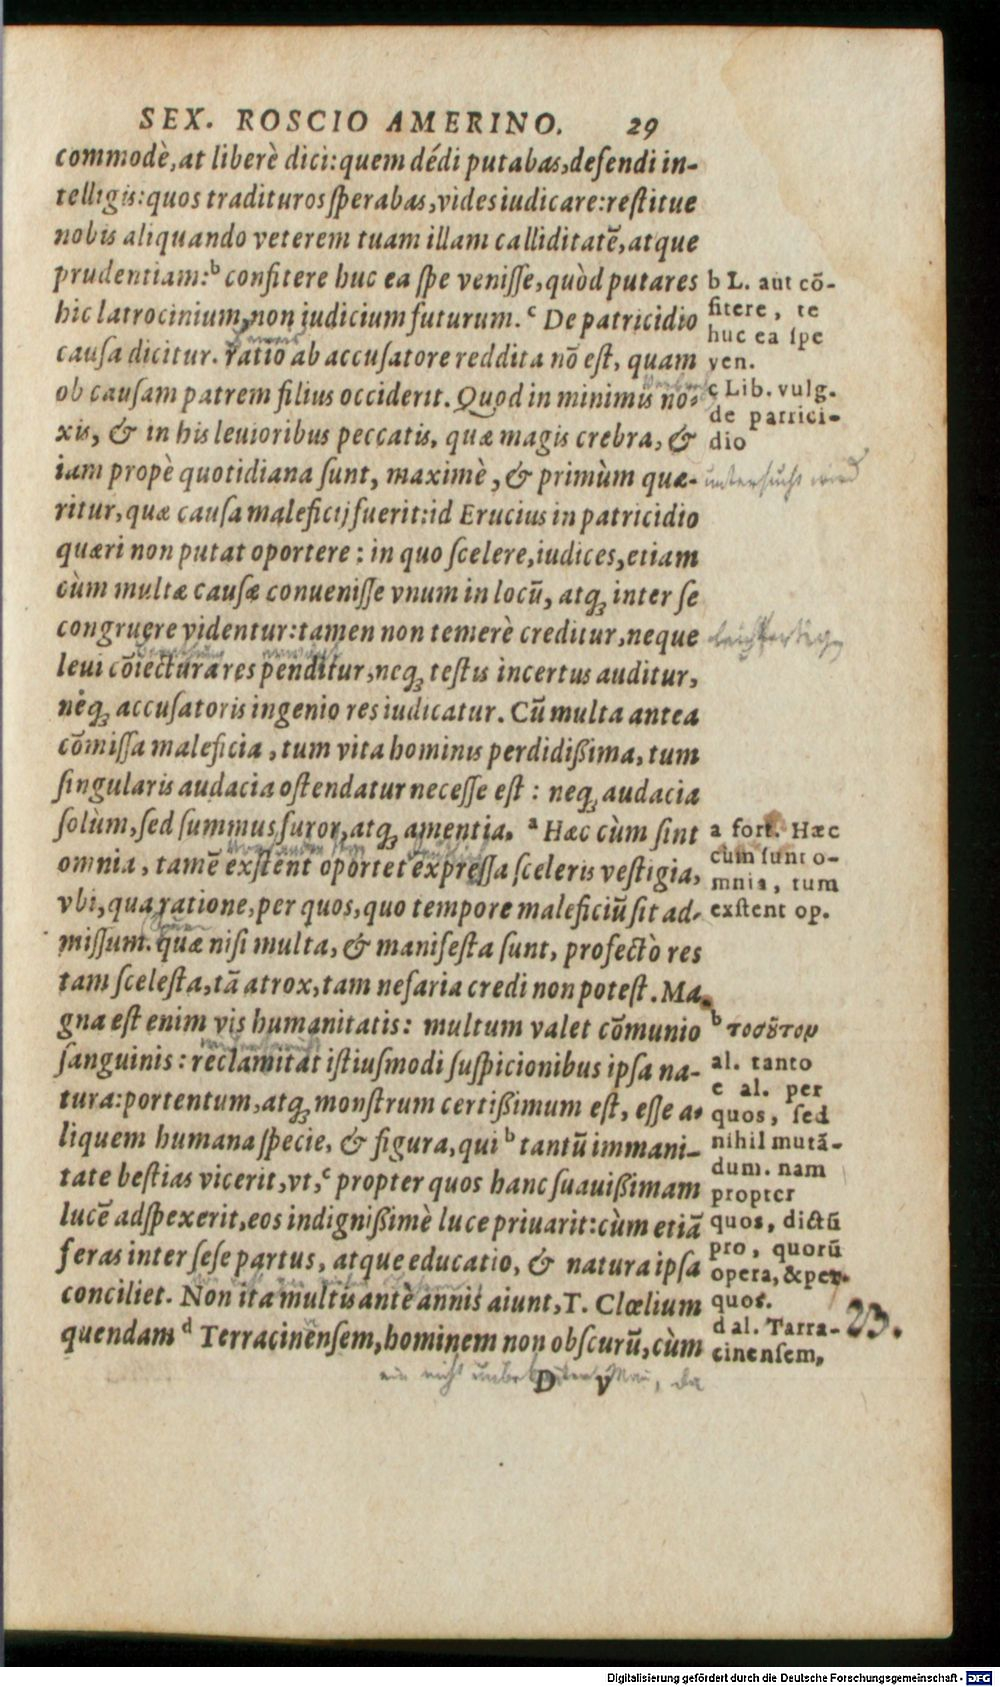 SEX. ROSCIO AMERINO. 29
commodè, at liberè dici: quem dédi putabas, defendi in-
telligis: quos tradituros sperabas, vides iudicare: restitue
nobis aliquando veterem tuam illam calliditatē, atque
prudentiam: b confitere huc ea spe venisse, quòd putares
hic latrocinium, non iudicium futurum. c De patricidio
causa dicitur. ratio ab accusatore reddita nō est, quam
ob causam patrem filius occiderit. Quod in minimis no-
xis, & in his leuioribus peccatis, quæ magis crebra, &
iam propè quotidiana sunt, maximè, & primùm quæ-
ritur, quæ causa maleficij fuerit: id Erucius in patricidio
quæri non putat oportere: in quo scelere, iudices, etiam
cùm multæ causæ conuenisse vnum in locū, atq; inter se
congruere videntur: tamen non temerè creditur, neque
leui cōiectura res penditur, neq; testis incertus auditur,
neq; accusatoris ingenio res iudicatur. Cū multa antea
cōmissa maleficia, tum vita hominis perdidißima, tum
singularis audacia ostendatur necesse est: neq; audacia
solùm, sed summus furor, atq; amentia. a Hæc cùm sint
omnia, tamē exstent oportet expressa sceleris vestigia,
vbi, qua ratione, per quos, quo tempore maleficiū sit ad-
missum. quæ nisi multa, & manifesta sunt, profectò res
tam scelesta, tā atrox, tam nefaria credi non potest. Ma-
gna est enim vis humanitatis: multum valet cōmunio
sanguinis: reclamitat istiusmodi suspicionibus ipsa na-
tura: portentum, atq; monstrum certißimum est, esse a-
liquem humana specie, & figura, qui b tantū immani-
tate bestias vicerit, vt, c propter quos hanc suauißimam
lucē adspexerit, eos indignißimè luce priuarit: cùm etiā
feras inter sese partus, atque educatio, & natura ipsa
conciliet. Non ita multis antè annis aiunt, T. Clœlium
quendam d Terracinensem, hominem non obscurū, cùm
D v
b L. aut cō-
fitere, te
huc ea spe
ven.
c Lib. vulg.
de patrici-
dio
untersucht wird
leichtfertig
a fort. Hæc
cùm sunt o-
mnia, tum
exstent op.
b τοσοῦτον
al. tanto
c al. per
quos, sed
nihil mutā-
dum. nam
propter
quos, dictū
pro, quorū
opera, & per
quos.
d al. Tarra-
cinensem,
23.
ein nicht unbekannter Man, da
Digitalisierung gefördert durch die Deutsche Forschungsgemeinschaft - DFG